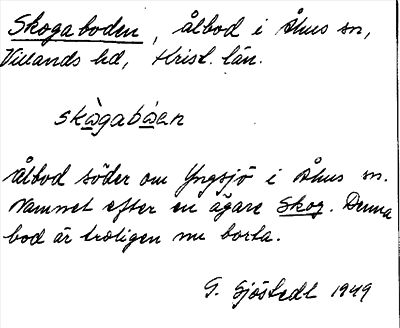 Skogaboden, ålbod i Åhus sn,
Villands hd, Krist. län.
skågabåen
Ålbod söder om Yngsjö i Åhus sn.
Namnet efter en ägare Skog. Denna
bod är troligen nu borta.
G. Sjöstedt 1949